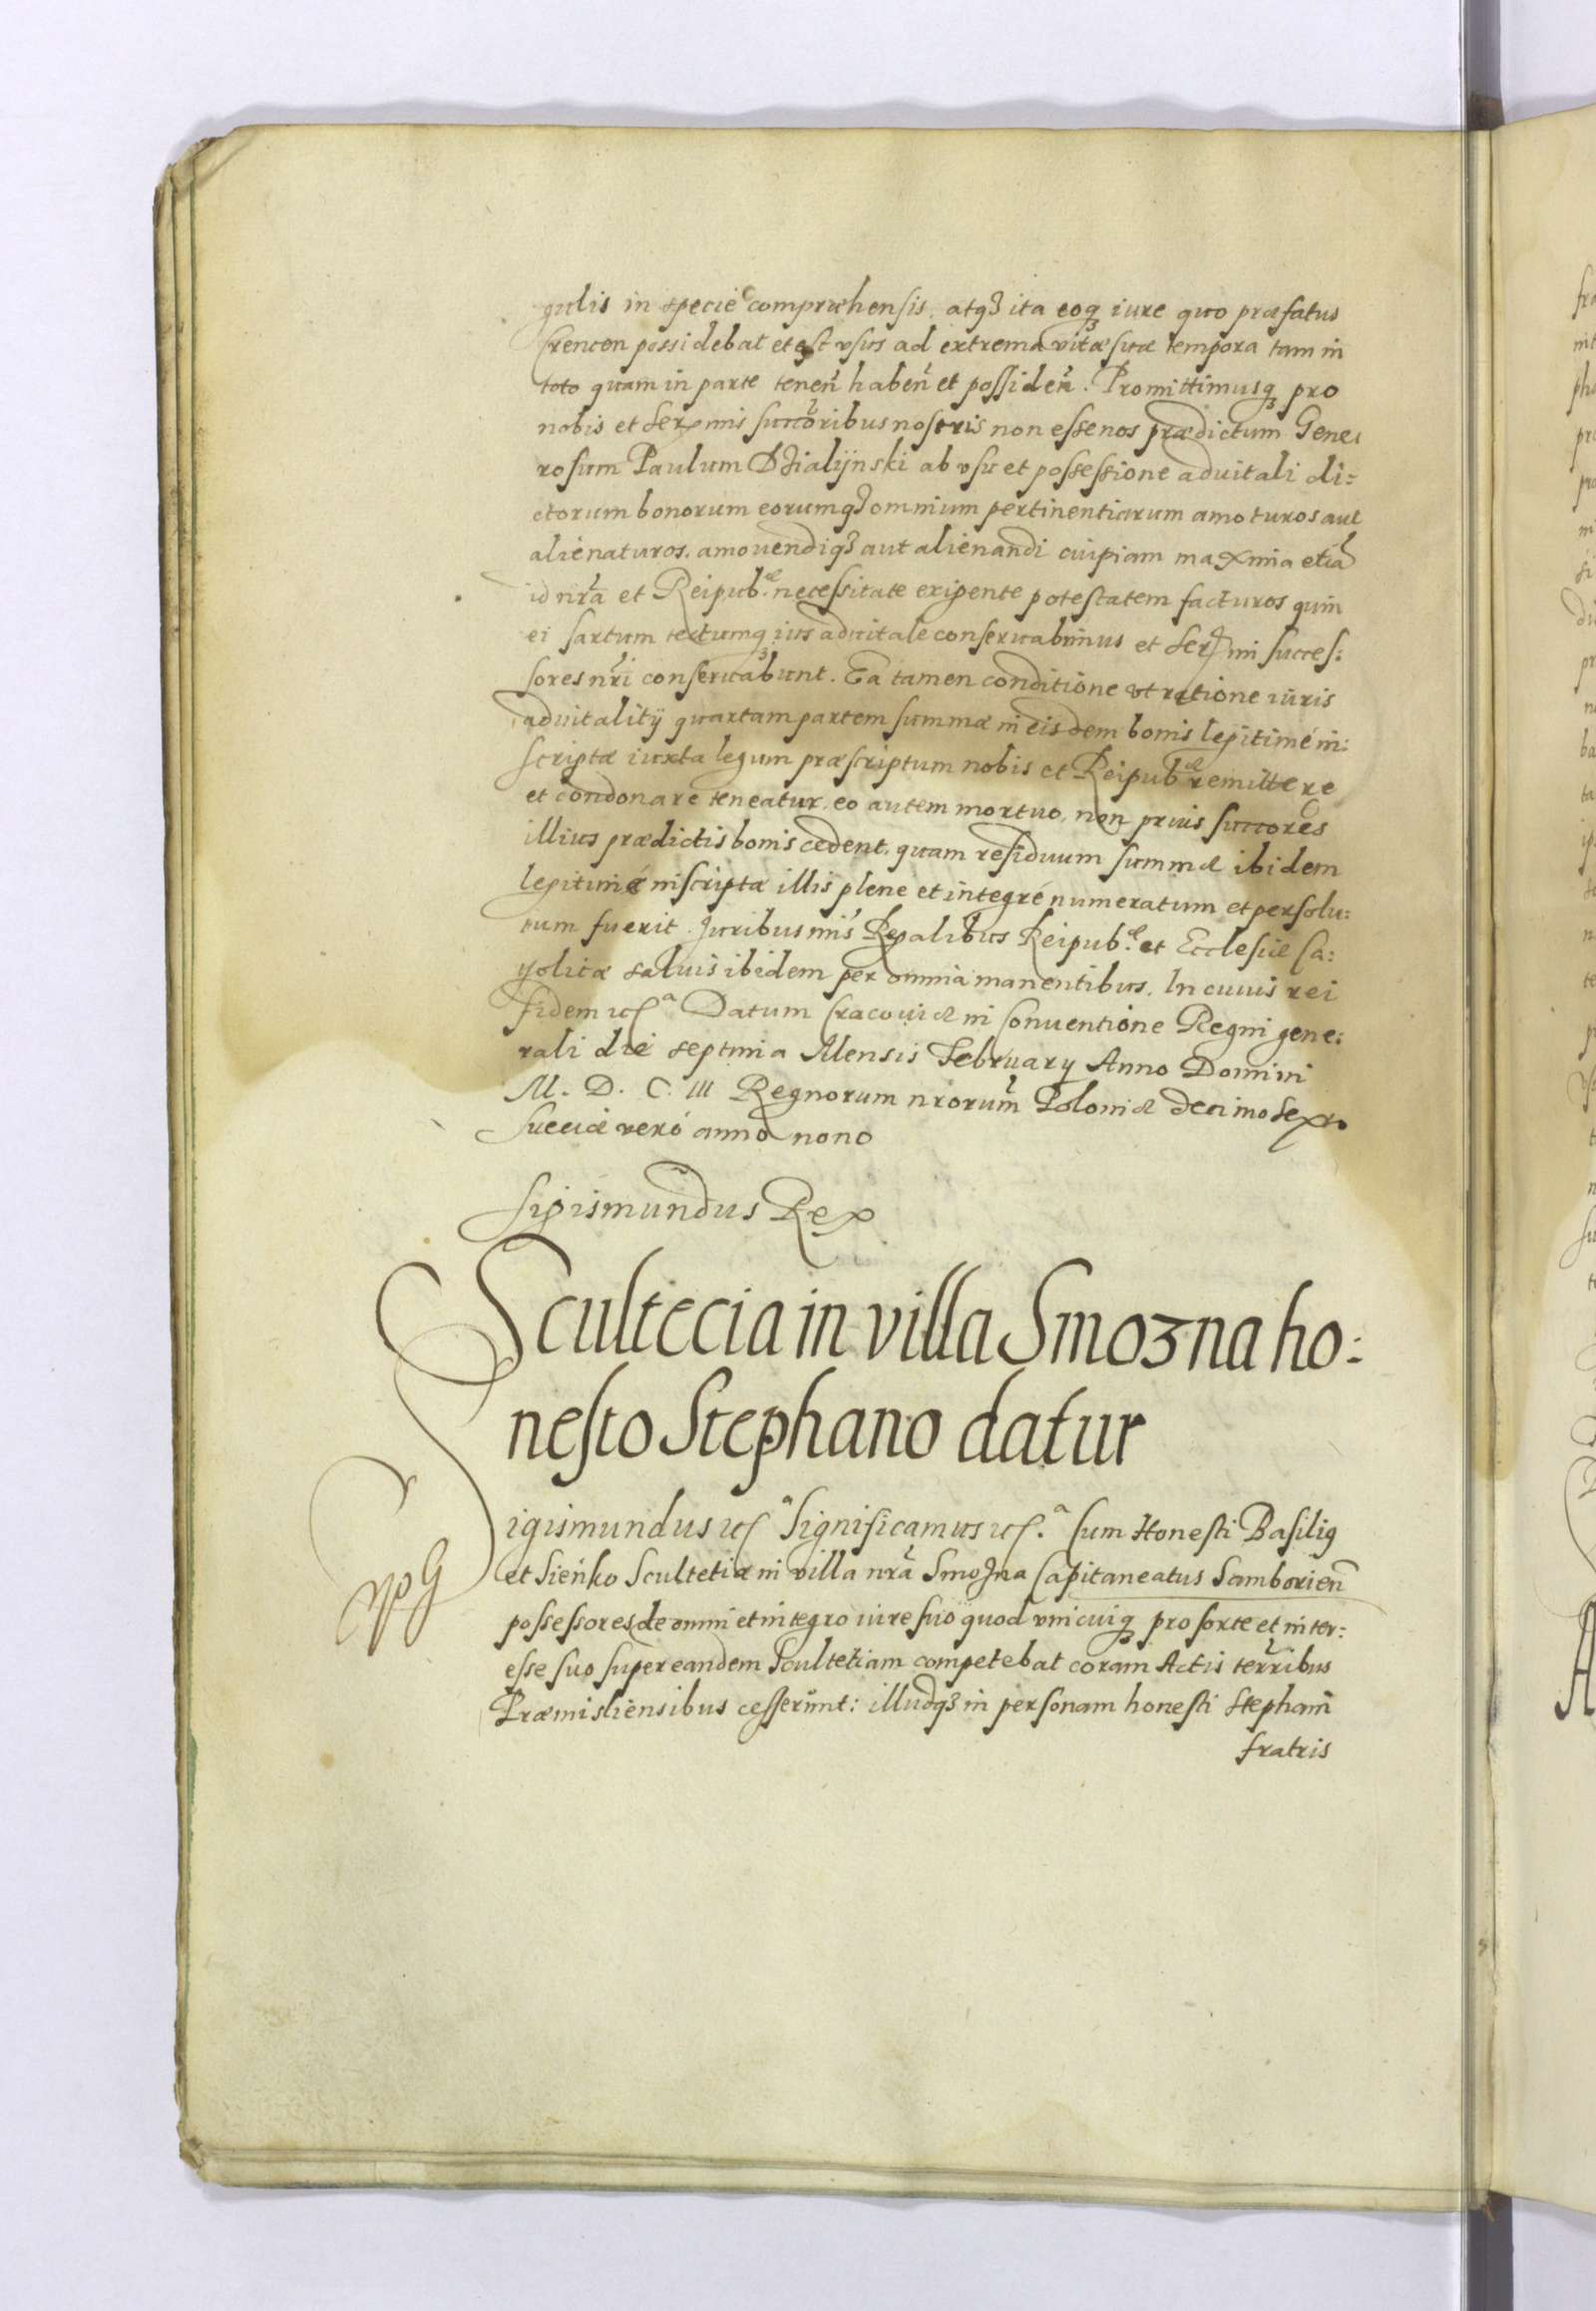 gulis in specie compræhensis, atq̨ ita eoq̨ iure quo præfatus
possidebat et est vsus ad extrema vitæ suæ tempora tam in
toto quam in parte tenen̄ haben̄ et possiden̄. Promittimusq̨ pro
nobis et Serxmis succoribus nostris non esse nos prædictum Gene:
rosum Paulum Dzialijnski ab vsu et possessione aduitali di:
ctorum bonorum eorumq̨ omnium pertinentiarum amoturos aut
alienaturos, amouendiq̨ aut alienandi cuipiam maxima etiā
id nrā et Reipub.æ necessitate exigente potestatem facturos quin
ei sartum tectumq̨ ius aduitale conseruabimus et Serxmi succes:
sores nrī conseruabunt. Ea tamen conditione vt ratione iuris
aduitalitij quartam partem summæ in eisdem bonis legitimé in:
scriptæ iuxta legum præscriptum nobis et Reipub.æ remittere
et condonare teneatur, eo autem mortuo, non prius succores
illius prædictis bonis cedent, quam residuum summæ ibidem
legitimé inscriptæ illis plene et integré numeratum et persolu:
tum fuerit. Juribus nris Regalibus Reipub.æ et Ecclesiæ Ca:
yolicæ saluis ibidem per omnia manentibus. In cuius rei
fidem etc.a Datum Cracouiæ in Conuentione Regni gene:
rali die septima Mensis February Anno Domini
M. D. C. III Regnorum nrorum Poloniæ decimo sexto
Sueciæ veró anno nono
Sigismundus Rex
Scultecia in villa Smozna ho:
nesto Stephano datur
Sigismundus etc.a Significamus etc.a Cum Honesti Basiliq
et Sieńko Scultetiæ in villa nrā Smozna Capitaneatus Samborien̄
possessores de omni et integro iure suo quod vnicuiq̨ pro sorte et inter:
esse suo super eandem Scultetiam competebat coram Actis terrribus
Præmisliensibus cesserunt: illudq̨ in personam honesti Stephani
fratris